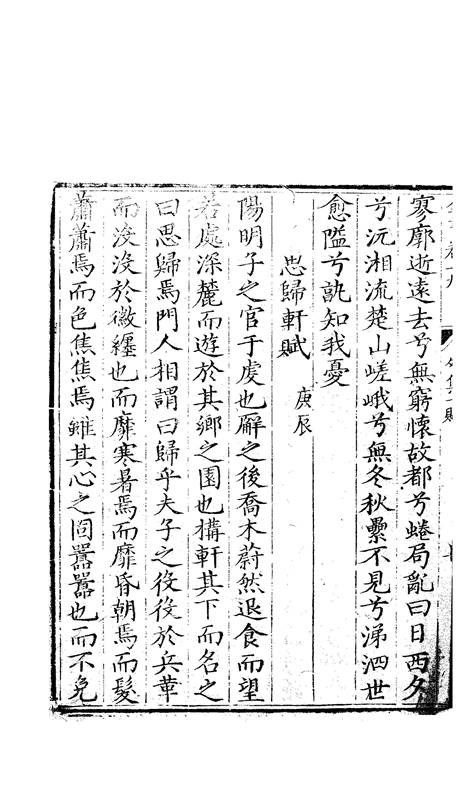 寥廓逝遠去兮無窮懷故都兮蜷局亂曰日西夕
兮沅湘流楚山嵯峨兮無冬秋纍不見兮涕泗世
愈隘兮孰知我憂
思歸軒賦 庚辰
陽明子之官于虔也廨之後喬木蔚然退食而望
若處深麓而遊於其鄉之園也構軒其下而名之
曰思歸焉門人相謂曰歸乎夫子之役役於兵革
而沒沒於徽纆也而靡寒暑焉而靡昏朝焉而髮
蕭蕭焉而色焦焦焉雖其心之固囂囂也而不免